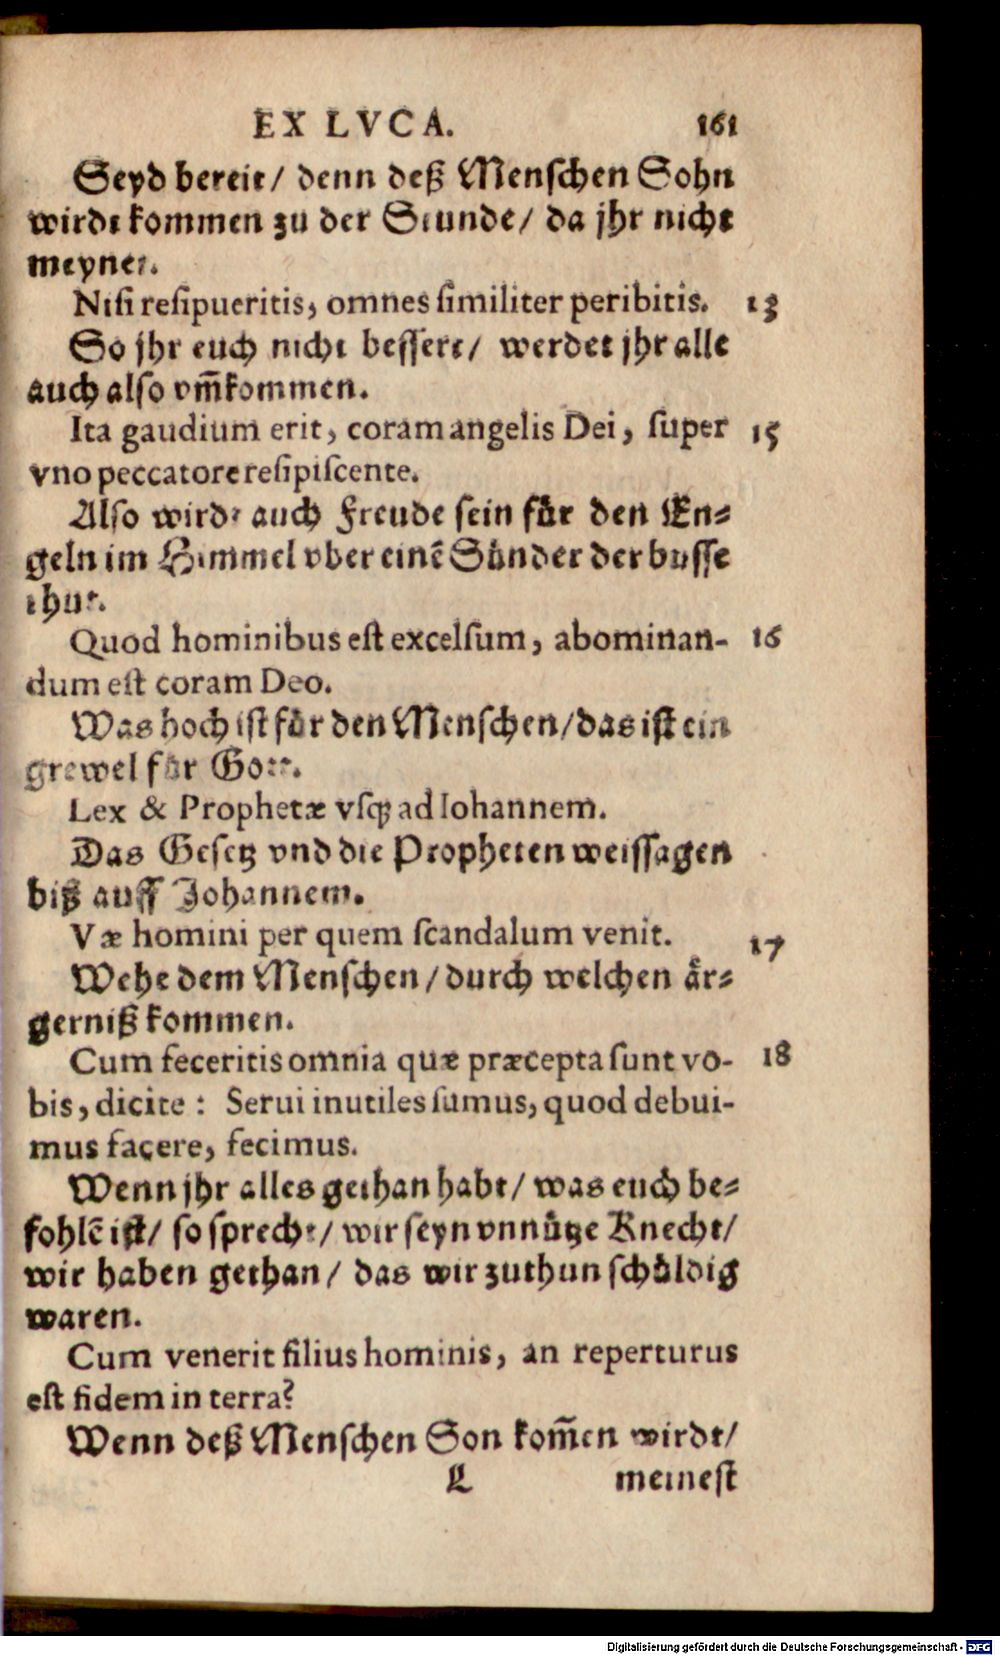 EX LVCA. 161
Seyd bereit/ denn deß Menschen Sohn
wirdt kommen zu der Stunde/ da jhr nicht
meynet.
Nisi resipueritis, omnes similiter peribitis. 13
So jhr euch nicht bessert/ werdet jhr alle
auch also vm̄kommen.
Ita gaudium erit, coram angelis Dei, super 15
vno peccatore resipiscente.
Also wirdt auch Freude sein fůr den En-
geln im Himmel vber einē Sůnder der busse
thut.
Quod hominibus est excelsum, abominan- 16
dum est coram Deo.
Was hoch ist fůr den Menschen/das ist ein
grewel fůr Gott.
Lex & Prophetæ vsq; ad Iohannem.
Das Gesetz vnd die Propheten weissagen
biß auff Johannem.
Væ homini per quem scandalum venit. 17
Wehe dem Menschen/durch welchen aͤr-
gerniß kommen.
Cum feceritis omnia quæ præcepta sunt vo- 18
bis, dicite : Serui inutiles sumus, quod debui-
mus facere, fecimus.
Wenn jhr alles gethan habt/ was euch be-
fohlē ist/ so sprecht/ wir seyn vnnůtze Knecht/
wir haben gethan/ das wir zuthun schůldig
waren.
Cum venerit filius hominis, an reperturus
est fidem in terra?
Wenn deß Menschen Son kom̄en wirdt/
L meinest
Digitalisierung gefördert durch die Deutsche Forschungsgemeinschaft - DFG